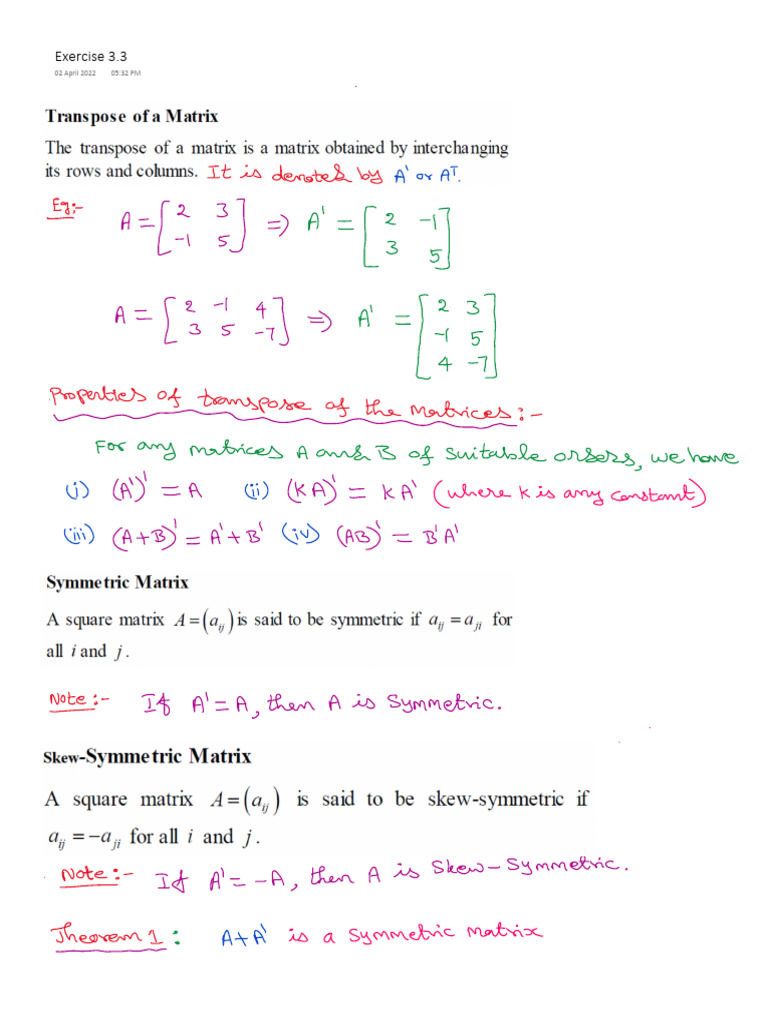 Exercise 3.3
02 April 2022 05:32 PM
Transpose of a Matrix
The transpose of a matrix is a matrix obtained by interchanging
its rows and columns. It is denoted by A' or Aᵀ.
Eg:-
A = [2 3; -1 5] ⇒ A' = [2 -1; 3 5]
A = [2 -1 4; 3 5 -7] ⇒ A' = [2 3; -1 5; 4 -7]
Properties of transpose of the matrices:-
For any matrices A and B of suitable orders, we have
(i) (A')' = A (ii) (KA)' = KA' (where K is any constant)
(iii) (A+B)' = A'+B' (iv) (AB)' = B'A'
Symmetric Matrix
A square matrix A = (aᵢⱼ) is said to be symmetric if aᵢⱼ = aⱼᵢ for
all i and j.
Note:- If A' = A, then A is Symmetric.
Skew-Symmetric Matrix
A square matrix A = (aᵢⱼ) is said to be skew-symmetric if
aᵢⱼ = -aⱼᵢ for all i and j.
Note:- If A' = -A, then A is Skew-Symmetric.
Theorem 1: A+A' is a symmetric matrix